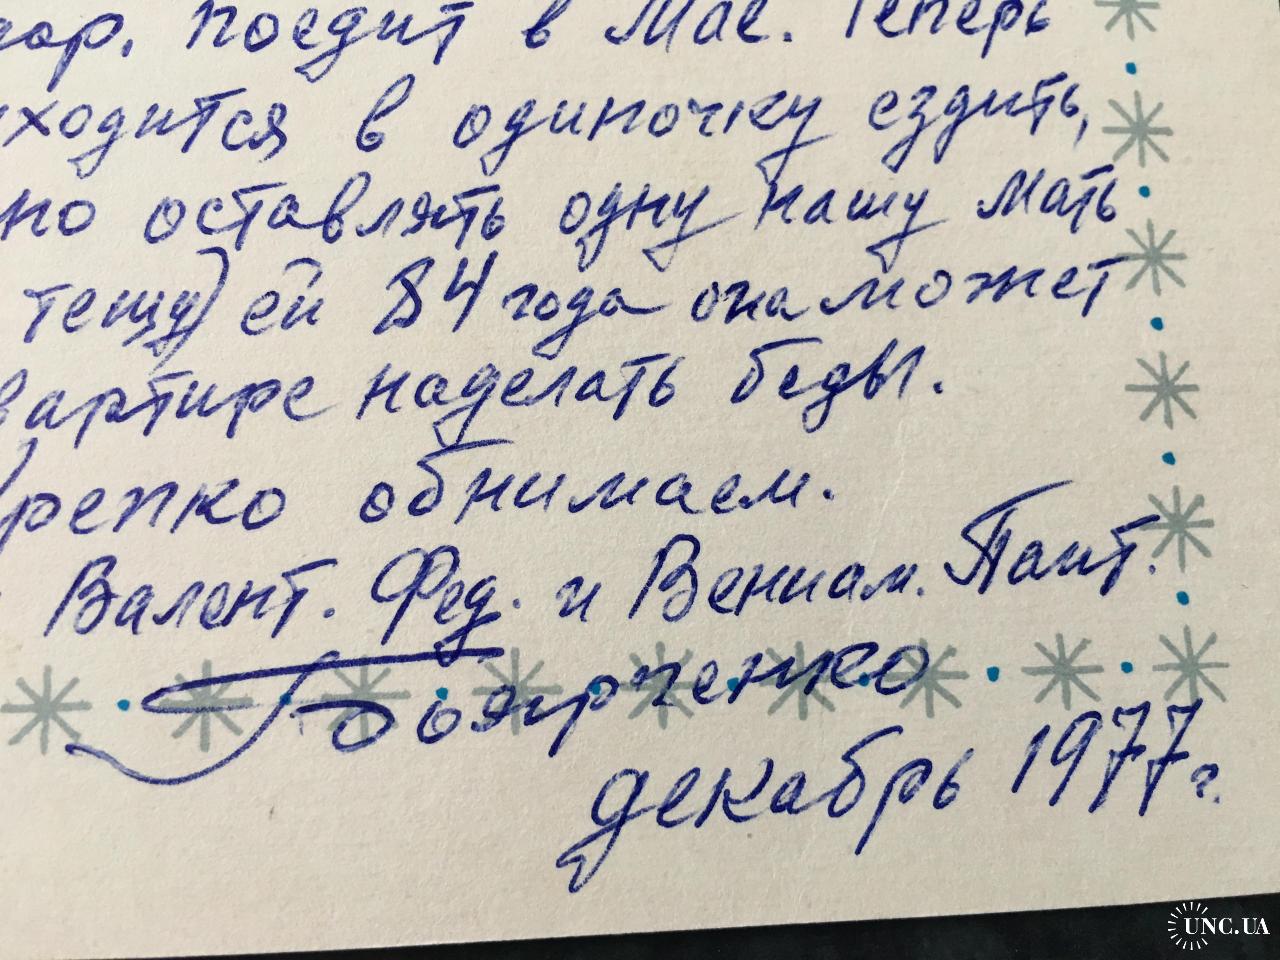 пор. поедит в Мае. Теперь
иходится в одиночку ездить,
но оставлять одну нашу мать
тещу) ей 84 года она может
вартире наделать беды.
репко обнимаем.
Валент. Фед. и Вениам. Пант.
Боярченко
декабрь 1977 г.
UNC.UA